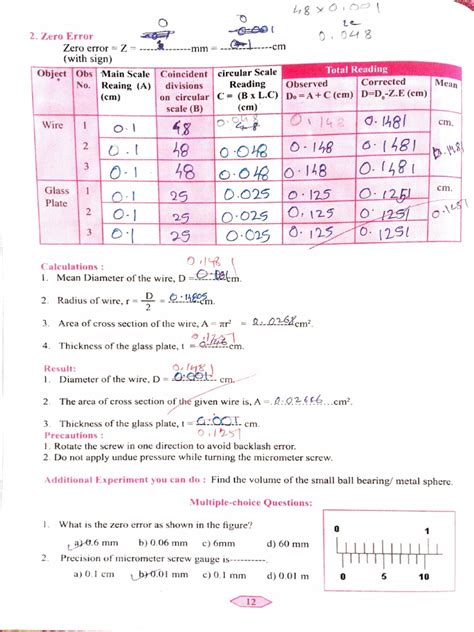 48 x 0.001
0.048
0 0
2. Zero Error
Zero error = Z = ------------mm = ------------cm
(with sign)
Object Obs No. Main Scale Reaing (A) (cm) Coincident divisions on circular scale (B) circular Scale Reading C = (B x L.C) (cm) Total Reading Mean
Observed D₀ = A + C (cm) Corrected D=D₀-Z.E (cm)
Wire 1 0.1 48 0.048 0.148 0.1481 cm.
2 0.1 48 0.048 0.148 0.1481 0.1481
3 0.1 48 0.048 0.148 0.1481
Glass Plate 1 0.1 25 0.025 0.125 0.1251 cm.
2 0.1 25 0.025 0.125 0.1251 0.1251
3 0.1 25 0.025 0.125 0.1251
Calculations :
0.1481
1. Mean Diameter of the wire, D = 0.001 cm.
2. Radius of wire, r = D/2 = cm.
3. Area of cross section of the wire, A = πr² = cm².
4. Thickness of the glass plate, t = cm.
Result:
0.1481
1. Diameter of the wire, D = 0.001 cm.
2. The area of cross section of the given wire is, A = cm².
3. Thickness of the glass plate, t = 0.001 cm.
0.1251
Precautions :
1. Rotate the screw in one direction to avoid backlash error.
2. Do not apply undue pressure while turning the micrometer screw.
Additional Experiment you can do : Find the volume of the small ball bearing/ metal sphere.
Multiple-choice Questions:
1. What is the zero error as shown in the figure?
a) 0.6 mm b) 0.06 mm c) 6mm d) 60 mm
2. Precision of micrometer screw gauge is-----------.
a) 0.1 cm b) 0.01 mm c) 0.1 mm d) 0.01 m
0 1
0 5 10
12